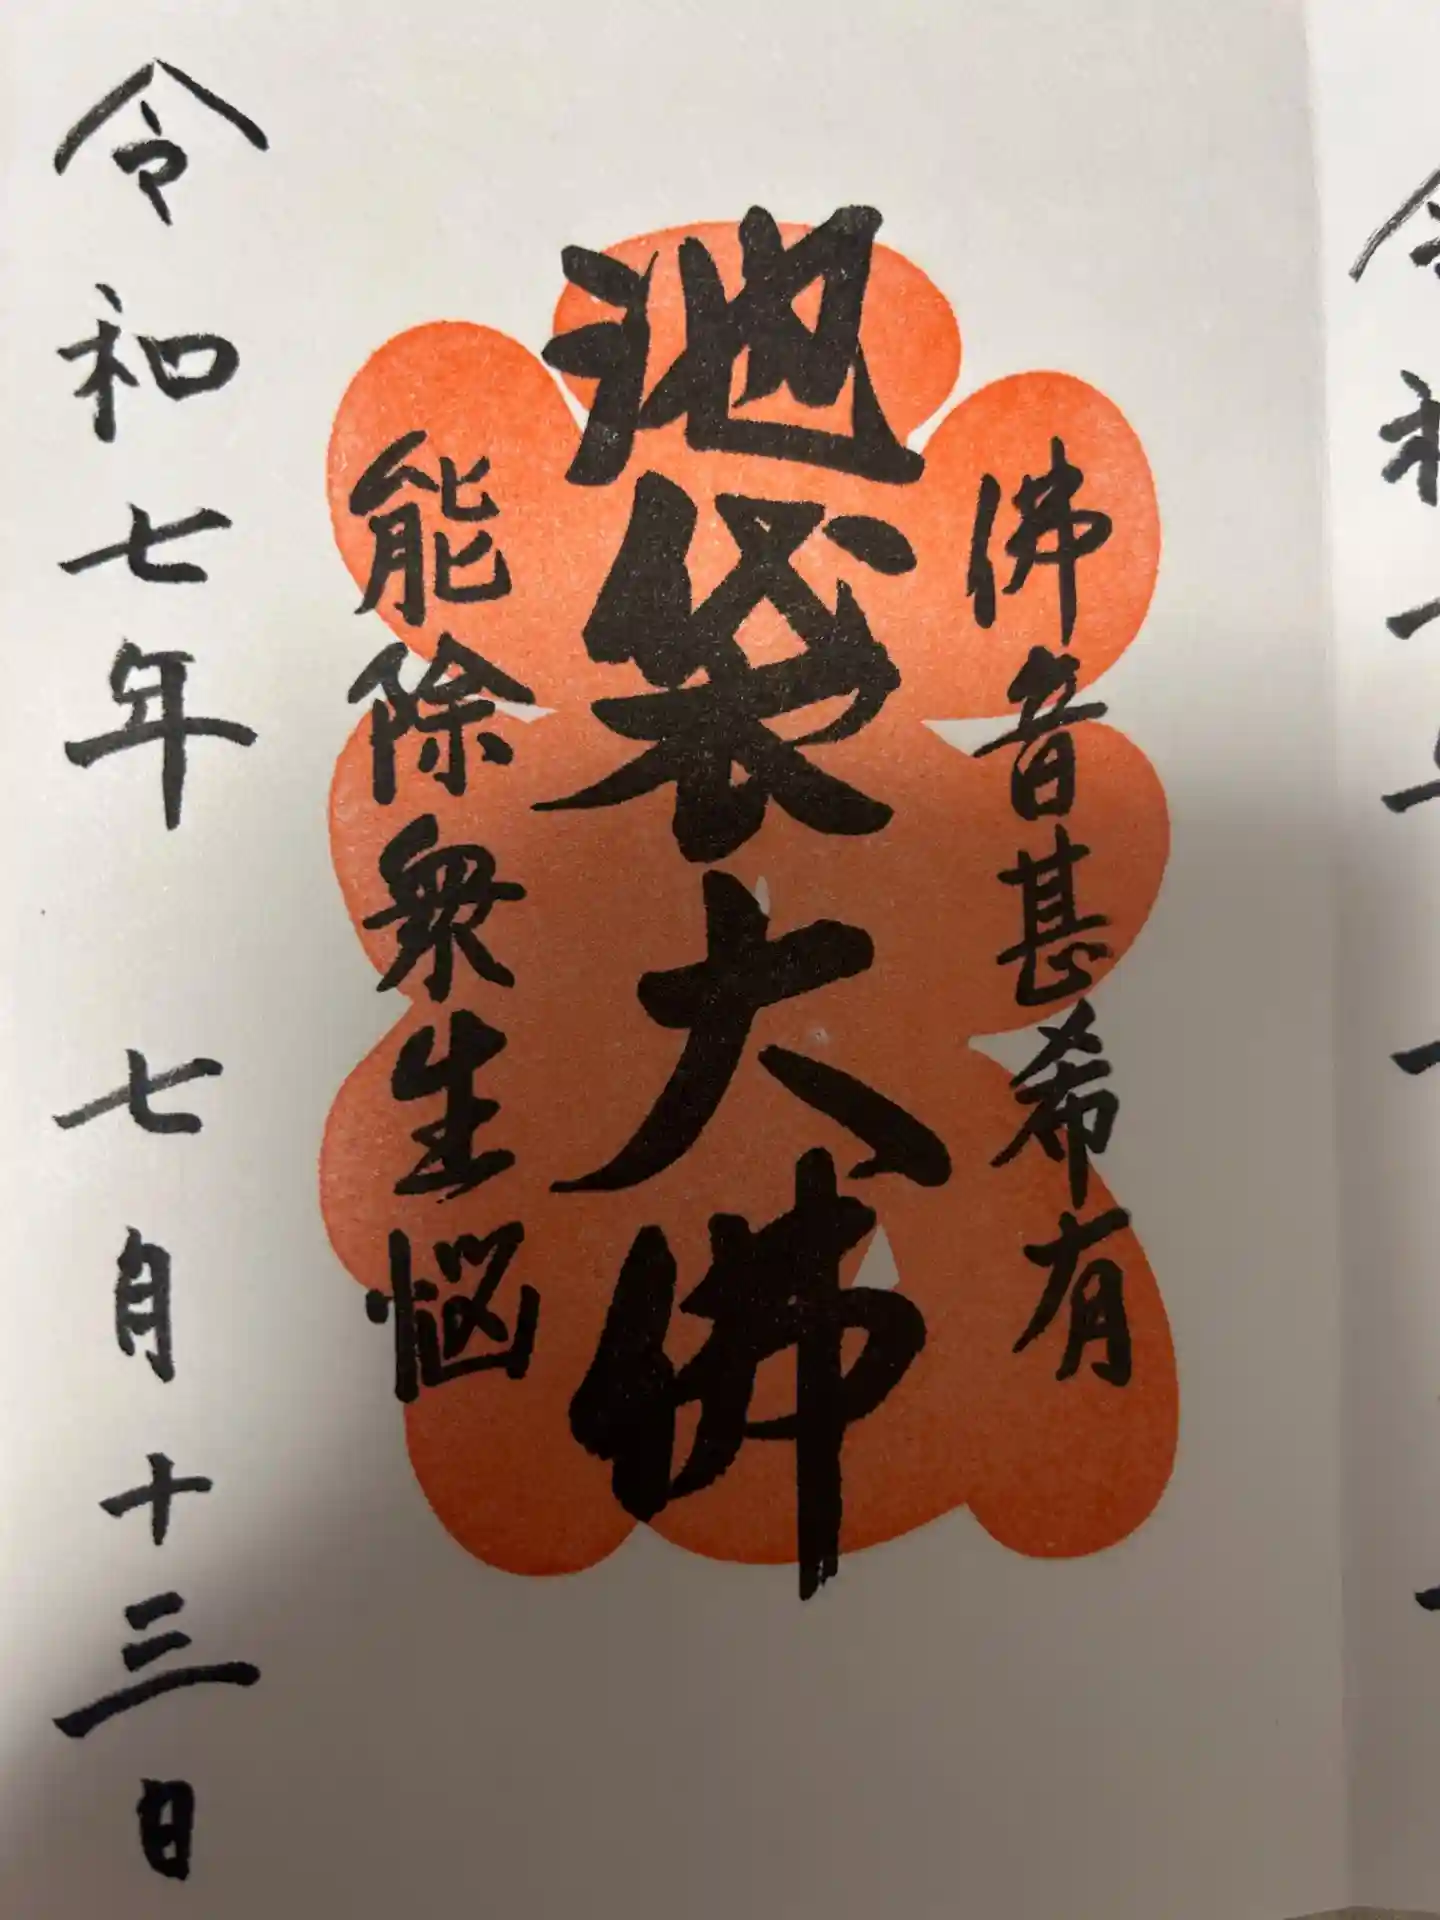 佛音甚希有
池袋大佛
能除衆生悩
令和七年 七月十三日